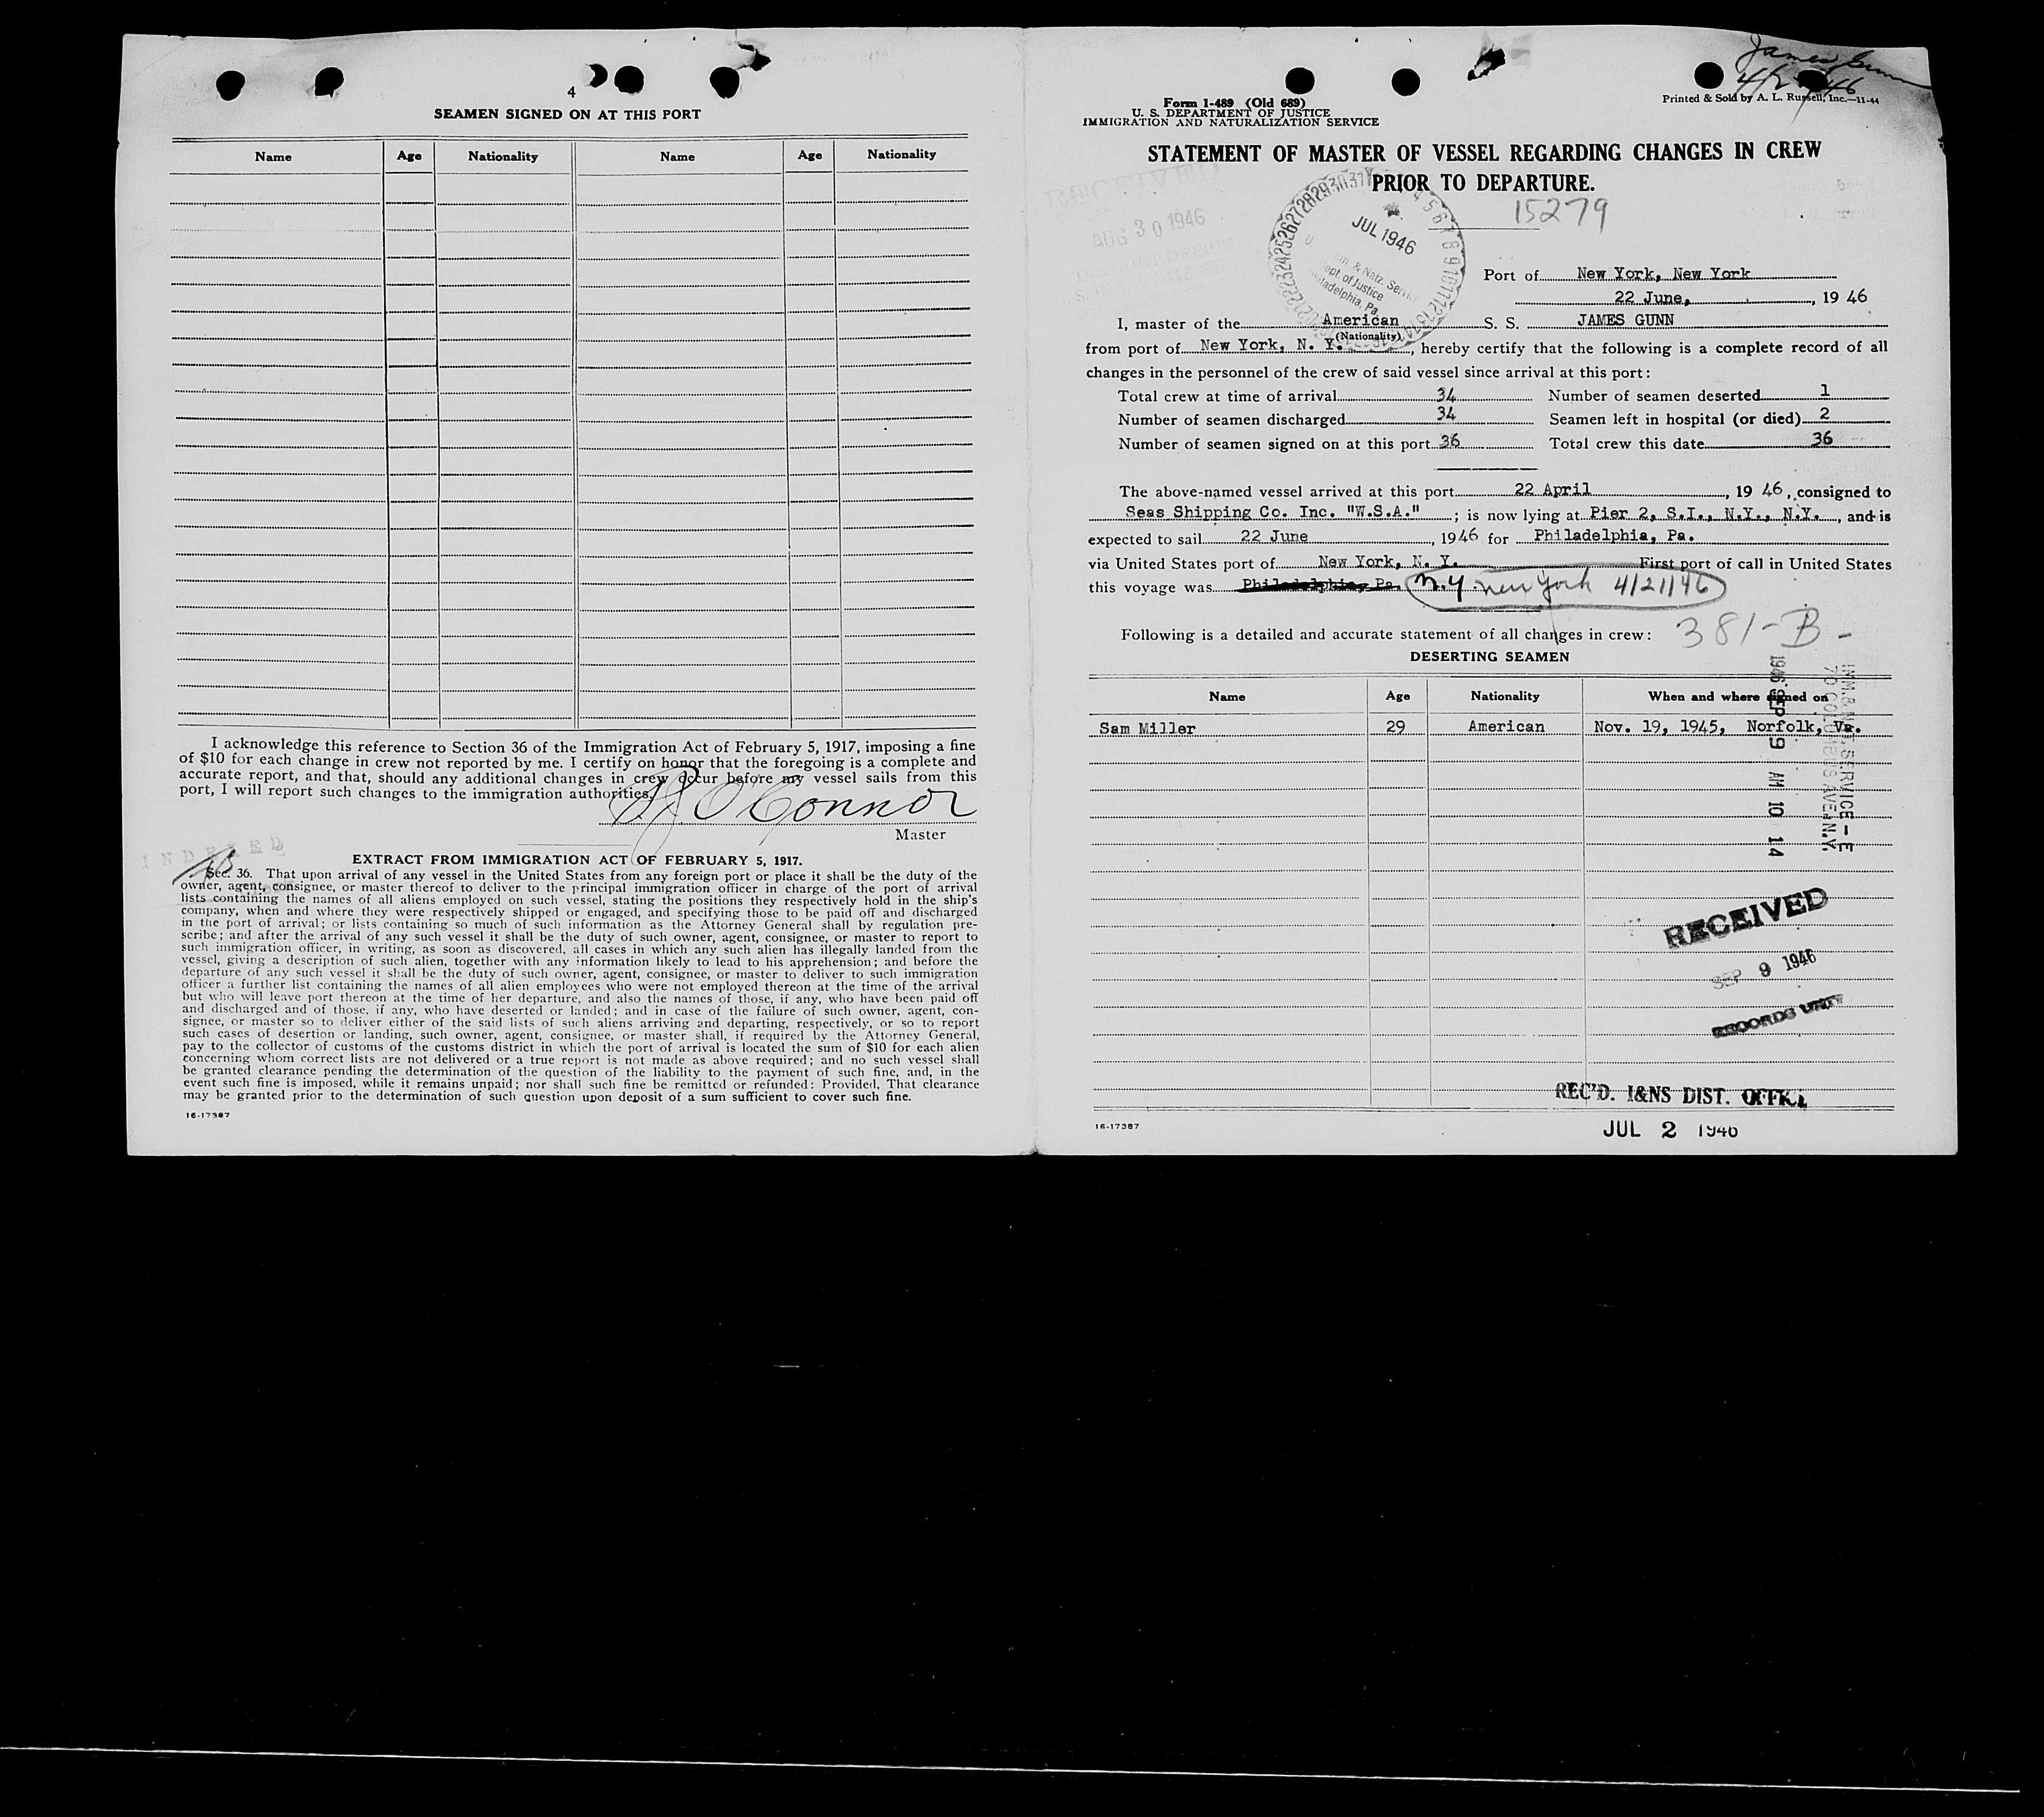 4
SEAMEN SIGNED ON AT THIS PORT
Name Age Nationality Name Age Nationality
I acknowledge this reference to Section 36 of the Immigration Act of February 5, 1917, imposing a fine
of $10 for each change in crew not reported by me. I certify on honor that the foregoing is a complete and
accurate report, and that, should any additional changes in crew occur before my vessel sails from this
port, I will report such changes to the immigration authorities.
O'Connor
Master
INDEXED
EXTRACT FROM IMMIGRATION ACT OF FEBRUARY 5, 1917.
Sec. 36. That upon arrival of any vessel in the United States from any foreign port or place it shall be the duty of the
owner, agent, consignee, or master thereof to deliver to the principal immigration officer in charge of the port of arrival
lists containing the names of all aliens employed on such vessel, stating the positions they respectively hold in the ship's
company, when and where they were respectively shipped or engaged, and specifying those to be paid off and discharged
in the port of arrival; or lists containing so much of such information as the Attorney General shall by regulation pre-
scribe; and after the arrival of any such vessel it shall be the duty of such owner, agent, consignee, or master to report to
such immigration officer, in writing, as soon as discovered, all cases in which any such alien has illegally landed from the
vessel, giving a description of such alien, together with any information likely to lead to his apprehension; and before the
departure of any such vessel it shall be the duty of such owner, agent, consignee, or master to deliver to such immigration
officer a further list containing the names of all alien employees who were not employed thereon at the time of the arrival
but who will leave port thereon at the time of her departure, and also the names of those, if any, who have been paid off
and discharged and of those, if any, who have deserted or landed; and in case of the failure of such owner, agent, con-
signee, or master so to deliver either of the said lists of such aliens arriving and departing, respectively, or so to report
such cases of desertion or landing, such owner, agent, consignee, or master shall, if required by the Attorney General,
pay to the collector of customs of the customs district in which the port of arrival is located the sum of $10 for each alien
concerning whom correct lists are not delivered or a true report is not made as above required; and no such vessel shall
be granted clearance pending the determination of the question of the liability to the payment of such fine, and, in the
event such fine is imposed, while it remains unpaid; nor shall such fine be remitted or refunded: Provided, That clearance
may be granted prior to the determination of such question upon deposit of a sum sufficient to cover such fine.
16-17387
James Gunn
Form 1-489 (Old 689)
U. S. DEPARTMENT OF JUSTICE
IMMIGRATION AND NATURALIZATION SERVICE
Printed & Sold by A. L. Russell, Inc.—11-44
STATEMENT OF MASTER OF VESSEL REGARDING CHANGES IN CREW
PRIOR TO DEPARTURE.
15279
RECEIVED
AUG 30 1946
JUL 1946
Philadelphia, Pa.
Port of New York, New York
22 June, , 19 46
I, master of the American S. S. JAMES GUNN
(Nationality)
from port of New York, N. Y. , hereby certify that the following is a complete record of all
changes in the personnel of the crew of said vessel since arrival at this port:
Total crew at time of arrival 34 Number of seamen deserted 1
Number of seamen discharged 34 Seamen left in hospital (or died) 2
Number of seamen signed on at this port 36 Total crew this date 36
The above-named vessel arrived at this port 22 April , 19 46, consigned to
Seas Shipping Co. Inc. "W.S.A." ; is now lying at Pier 2, S.I., N.Y., N.Y. , and is
expected to sail 22 June , 1946 for Philadelphia, Pa.
via United States port of New York, N. Y. First port of call in United States
this voyage was Philadelphia, Pa. N.Y. New York 4/21/46
Following is a detailed and accurate statement of all changes in crew: 381-B-
DESERTING SEAMEN
Name Age Nationality When and where signed on
Sam Miller 29 American Nov. 19, 1945, Norfolk, Va.
1946 SEP 9 AM 10 14
70 COLUMBUS AVE. N.Y.
RECEIVED
SEP 9 1946
RECORDS UNIT
REC'D. I&NS DIST. OFFICE
JUL 2 1946
16-17387